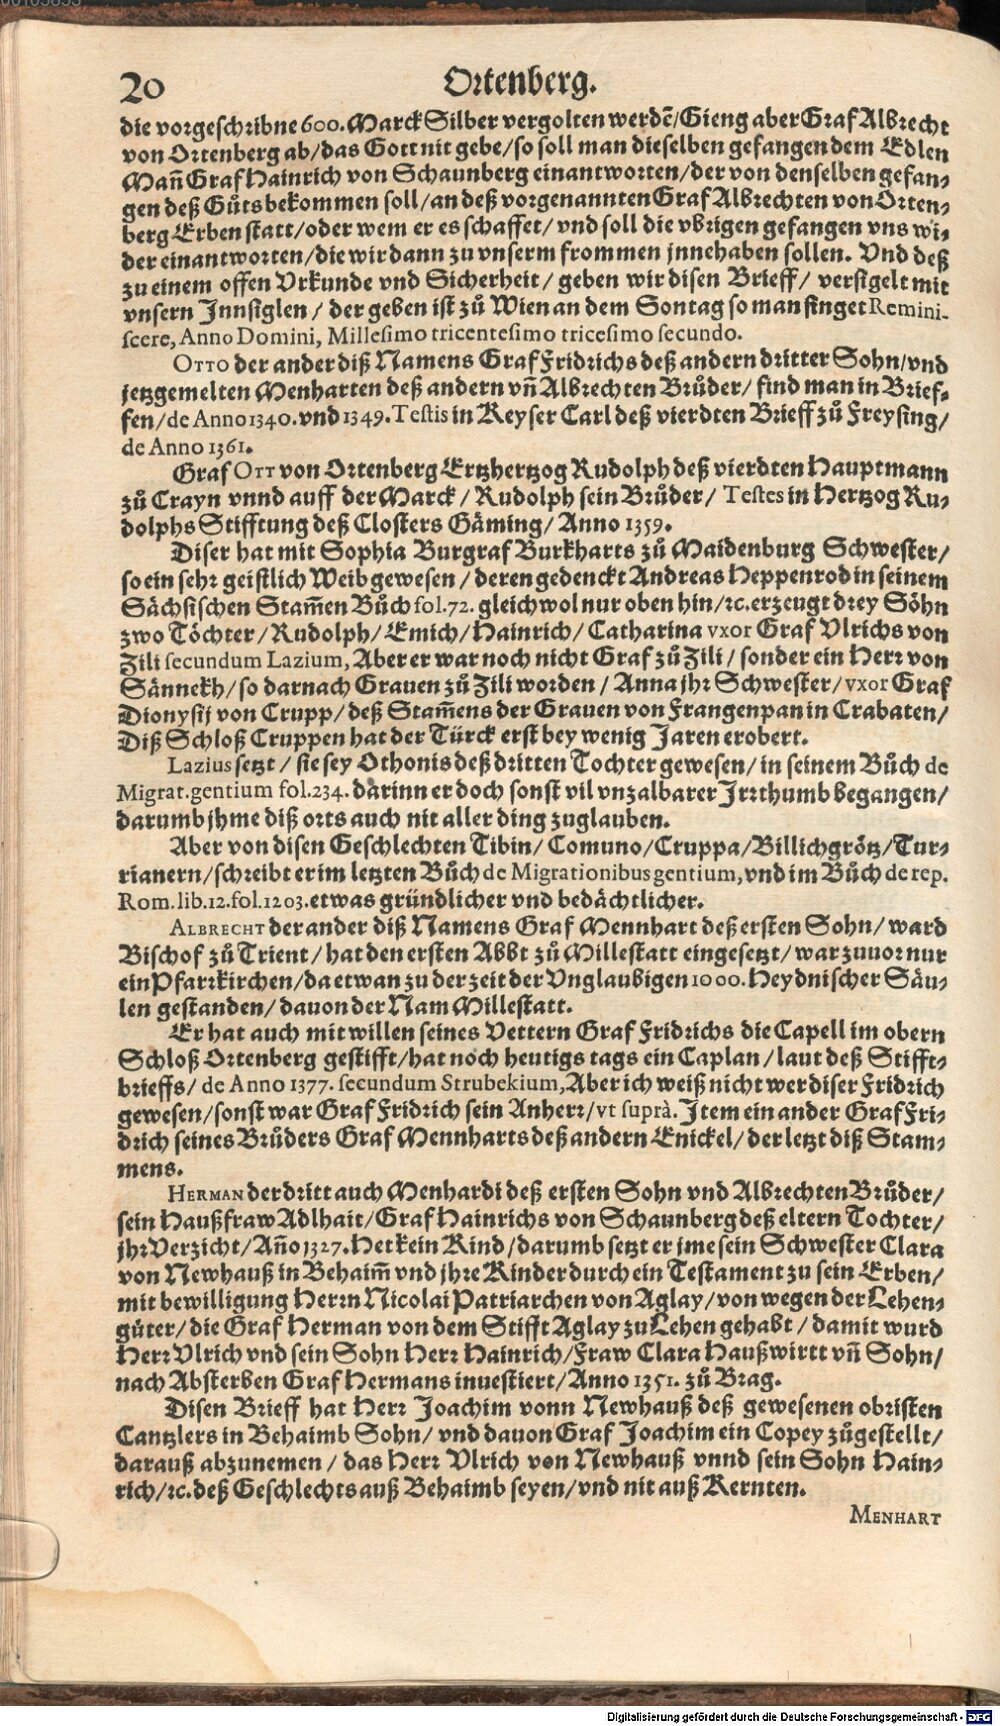 20 Ortenberg.
die vorgeschribne 600. Marck Silber vergolten werdē/Gieng aber Graf Albrecht
von Ortenberg ab/das Gott nit gebe/so soll man dieselben gefangen dem Edlen
Mañ Graf Hainrich von Schaunberg einantworten/der von denselben gefan-
gen deß Gůts bekommen soll/an deß vorgenannten Graf Albrechten von Orten-
berg Erben statt/oder wem er es schaffet/vnd soll die vbrigen gefangen vns wi-
der einantworten/die wir dann zu vnserm frommen jnnehaben sollen. Vnd deß
zu einem offen Vrkunde vnd Sicherheit/ geben wir disen Brieff/ versigelt mit
vnsern Innsiglen / der geben ist zů Wien an dem Sontag so man singet Remini-
scere, Anno Domini, Millesimo tricentesimo tricesimo secundo.
OTTO der ander diß Namens Graf Fridrichs deß andern dritter Sohn/vnd
jetzgemelten Menharten deß andern vñ Albrechten Brůder/ find man in Brief-
fen/de Anno 1340. vnd 1349. Testis in Keyser Carl deß vierdten Brieff zů Freysing/
de Anno 1361.
Graf OTT von Ortenberg Ertzhertzog Rudolph deß vierdten Hauptmann
zů Crayn vnnd auff der Marck / Rudolph sein Brůder/ Testes in Hertzog Ru-
dolphs Stifftung deß Closters Gäming/ Anno 1359.
Diser hat mit Sophia Burgraf Burkharts zů Maidenburg Schwester/
so ein sehr geistlich Weib gewesen / deren gedenckt Andreas Heppenrod in seinem
Sächsischen Stam̃en Bůch fol. 72. gleichwol nur oben hin/ꝛc. erzeugt drey Söhn
zwo Töchter/Rudolph/Emich/Hainrich/ Catharina vxor Graf Vlrichs von
Zili secundum Lazium, Aber er war noch nicht Graf zů Zili / sonder ein Herr von
Sännekh/so darnach Grauen zů Zili worden / Anna jhr Schwester/ vxor Graf
Dionysij von Crupp/deß Stam̃ens der Grauen von Frangenpan in Crabaten/
Diß Schloß Cruppen hat der Türck erst bey wenig Jaren erobert.
Lazius setzt / sie sey Othonis deß dritten Tochter gewesen/ in seinem Bůch de
Migrat. gentium fol. 234. darinn er doch sonst vil vnzalbarer Irrthumb begangen/
darumb jhme diß orts auch nit aller ding zuglauben.
Aber von disen Geschlechten Tibin/ Comuno/Cruppa/Billichgrötz/Tur-
rianern/schreibt er im letzten Bůch de Migrationibus gentium, vnd im Bůch de rep.
Rom. lib. 12. fol. 1203. etwas gründlicher vnd bedächtlicher.
ALBRECHT der ander diß Namens Graf Mennhart deß ersten Sohn / ward
Bischof zů Trient / hat den ersten Abbt zů Millestatt eingesetzt / war zuuor nur
ein Pfarrkirchen/da etwan zu der zeit der Vnglaubigen 1000. Heydnischer Säu-
len gestanden / dauon der Nam Millestatt.
Er hat auch mit willen seines Vettern Graf Fridrichs die Capell im obern
Schloß Ortenberg gestifft/hat noch heutigs tags ein Caplan / laut deß Stifft-
brieffs/ de Anno 1377. secundum Strubekium, Aber ich weiß nicht wer diser Fridrich
gewesen/sonst war Graf Fridrich sein Anherr/vt suprà. Item ein ander Graf Fri-
drich seines Brůders Graf Mennharts deß andern Enickel/ der letzt diß Stam-
mens.
HERMAN der dritt auch Menhardi deß ersten Sohn vnd Albrechten Brůder/
sein Haußfraw Adlhait/Graf Hainrichs von Schaunberg deß eltern Tochter/
jhr Verzicht/Año 1327. Het kein Kind/darumb setzt er jme sein Schwester Clara
von Newhauß in Behaim̃ vnd jhre Kinder durch ein Testament zu sein Erben/
mit bewilligung Herrn Nicolai Patriarchen von Aglay/von wegen der Lehen-
güter/die Graf Herman von dem Stifft Aglay zu Lehen gehabt / damit wurd
Herr Vlrich vnd sein Sohn Herr Hainrich/Fraw Clara Haußwirtt vñ Sohn/
nach Absterben Graf Hermans inuestiert/Anno 1351. zů Brag.
Disen Brieff hat Herr Joachim vonn Newhauß deß gewesenen obristen
Cantzlers in Behaimb Sohn/ vnd dauon Graf Joachim ein Copey zůgestellt/
darauß abzunemen / das Herr Vlrich von Newhauß vnnd sein Sohn Hain-
rich/ꝛc. deß Geschlechts auß Behaimb seyen/vnd nit auß Kernten.
MENHART
Digitalisierung gefördert durch die Deutsche Forschungsgemeinschaft - DFG